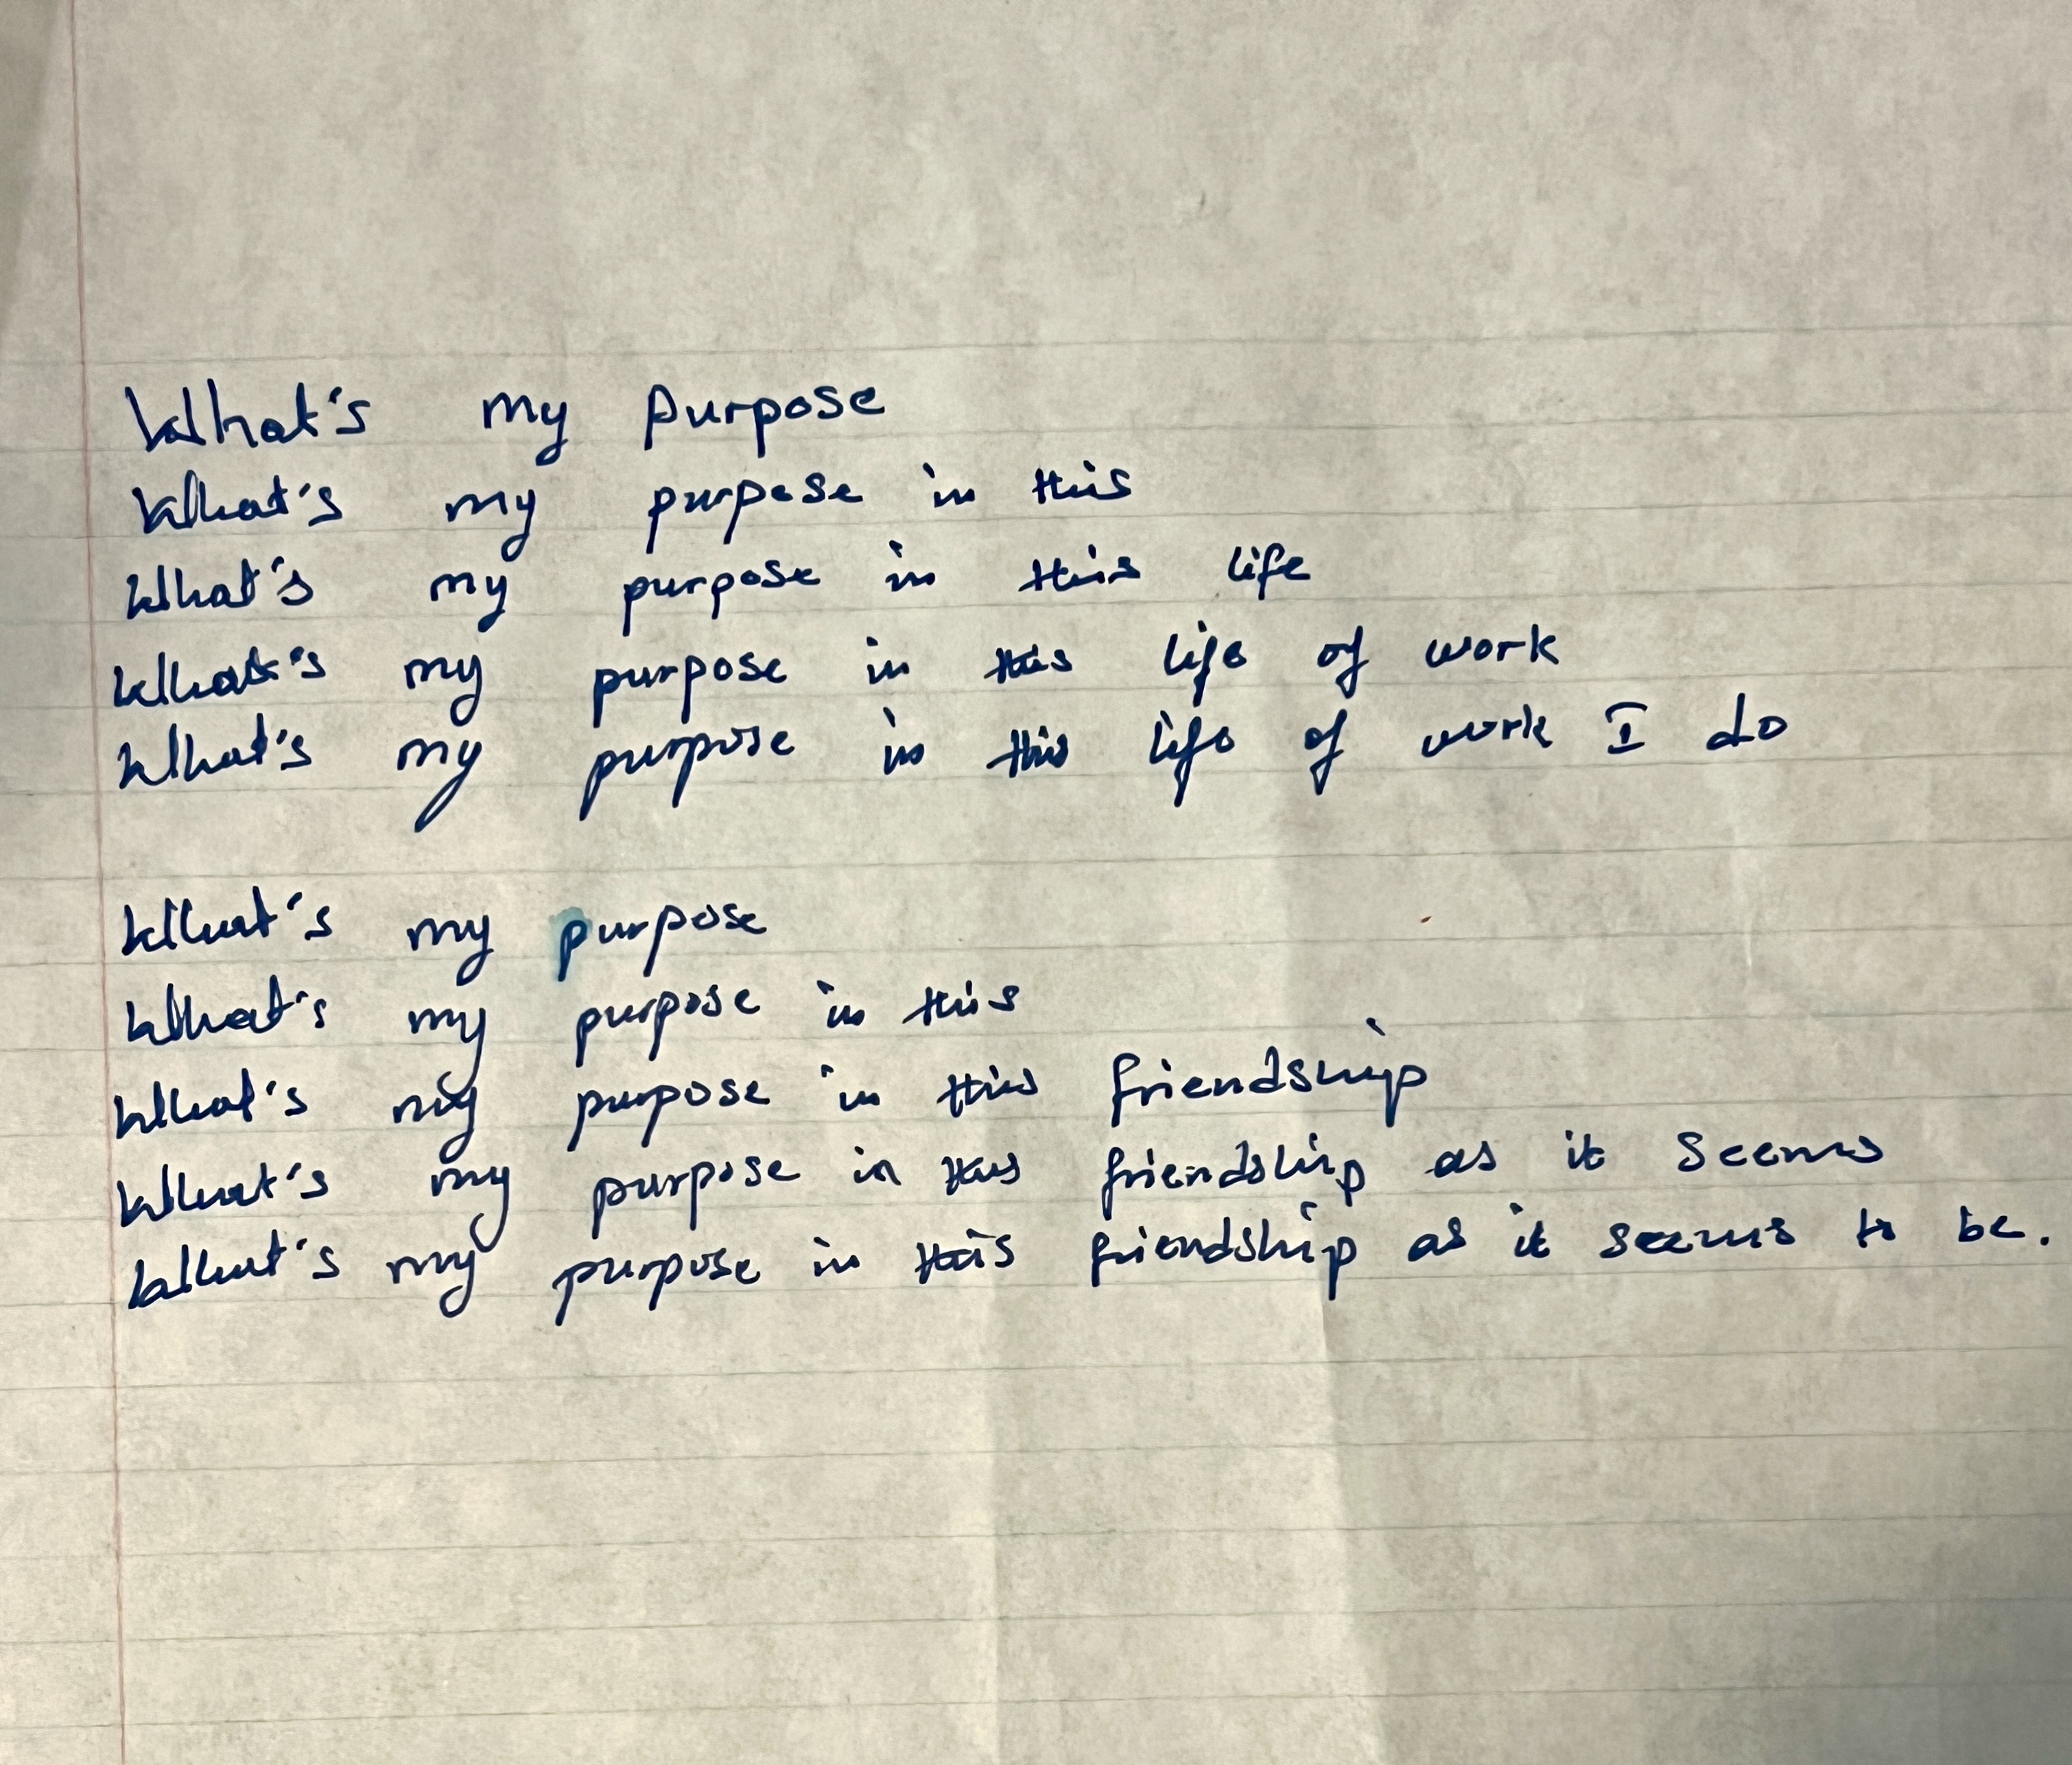 What's my purpose
What's my purpose in this
What's my purpose in this life
What's my purpose in this life of work
What's my purpose in this life of work I do
What's my purpose
What's my purpose in this
What's my purpose in this friendship
What's my purpose in this friendship as it seems
What's my purpose in this friendship as it seems to be.